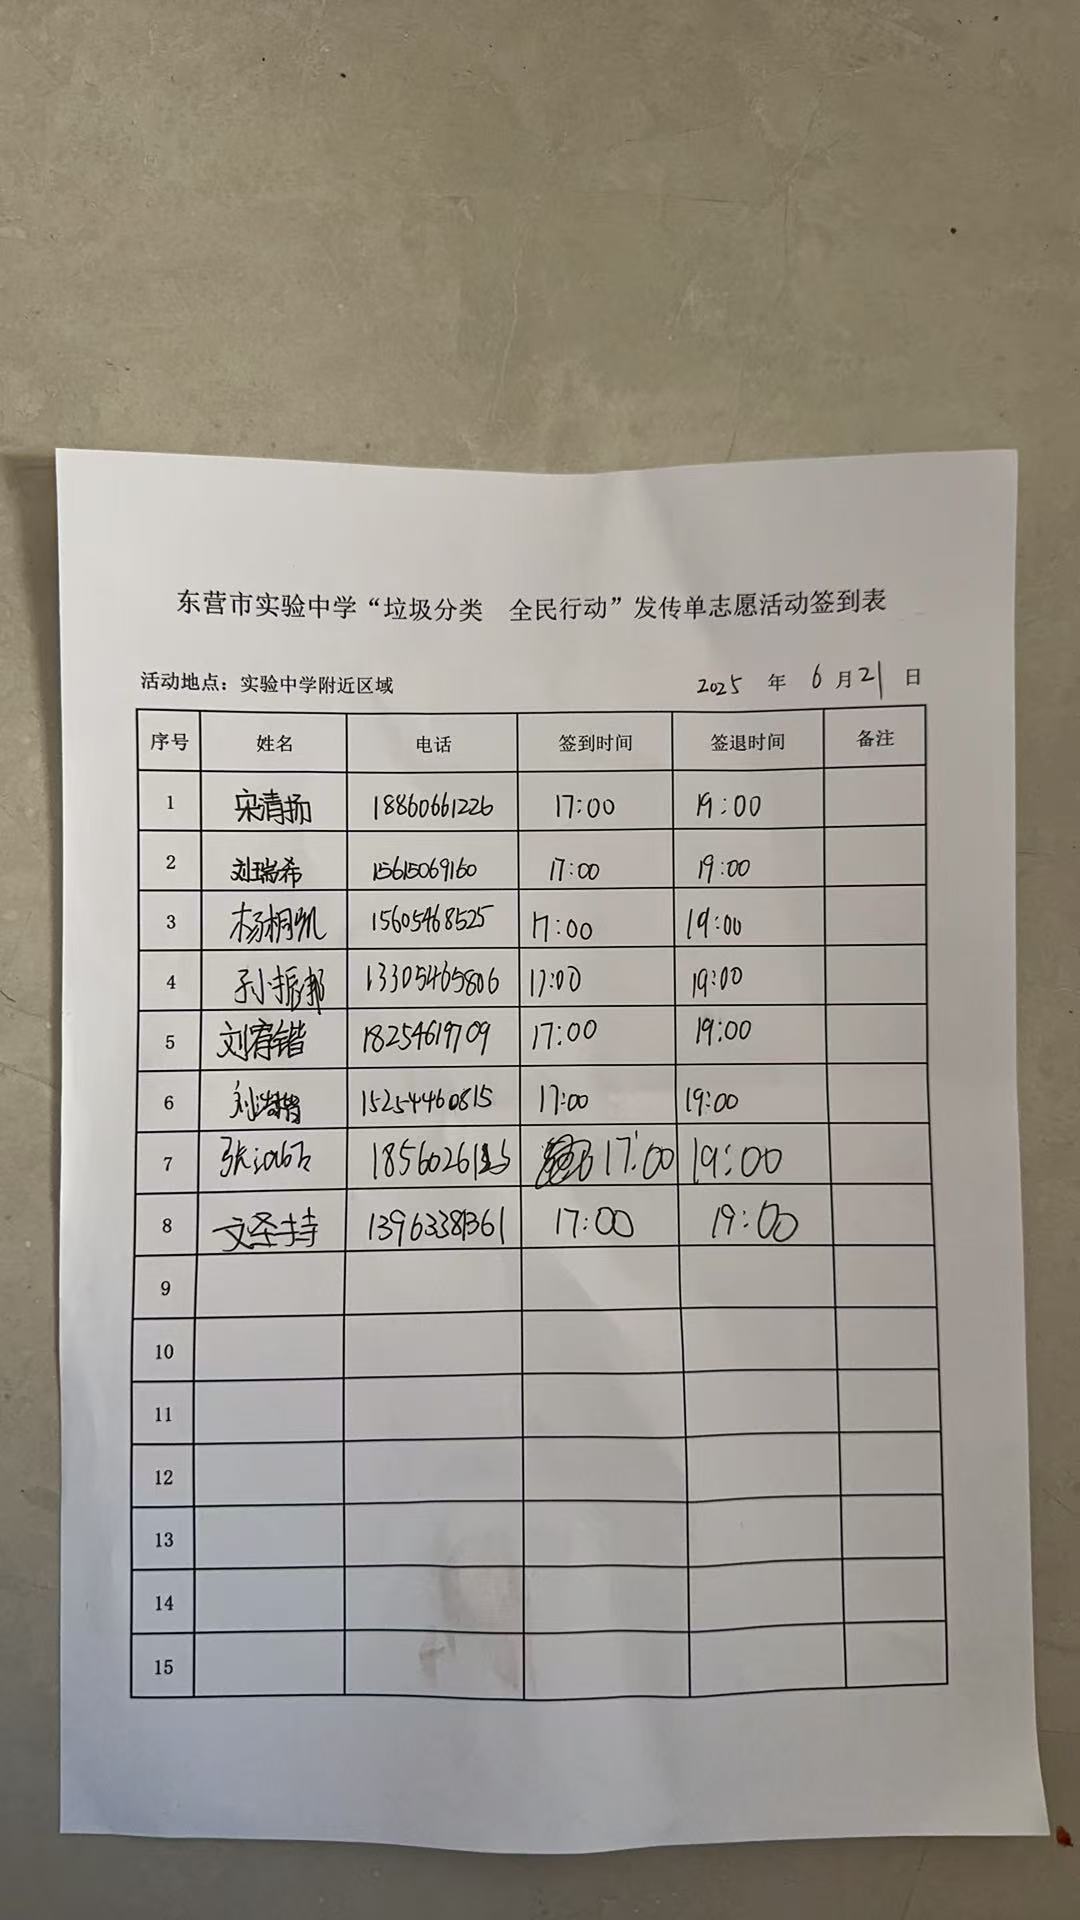 东营市实验中学“垃圾分类　全民行动”发传单志愿活动签到表
活动地点：实验中学附近区域 2025 年 6 月 21 日
序号 姓名 电话 签到时间 签退时间 备注
1 宋清扬 18860661226 17:00 19:00
2 刘瑞希 15615069160 17:00 19:00
3 杨桐凯 15605468525 17:00 19:00
4 孙振邦 13305465806 17:00 19:00
5 18254619709 17:00 19:00
6 15254460815 17:00 19:00
7 17:00 19:00
8 文圣持 17:00 19:00
9
10
11
12
13
14
15